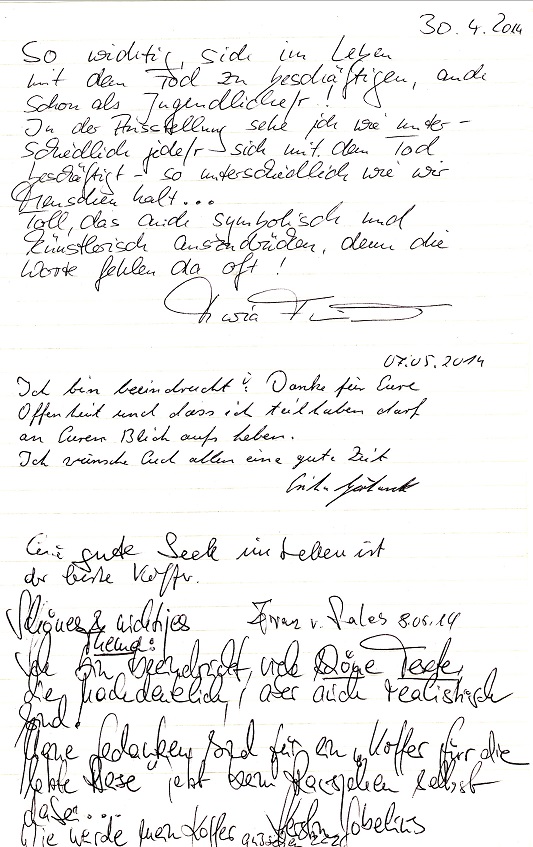 30.4.2014
So wichtig, sich im Leben
mit dem Tod zu beschäftigen, auch
schon als Jugendliche/r!
In der Ausstellung sehe ich wie unter-
schiedlich jede/r sich mit dem Tod
beschäftigt - so unterschiedlich wie wir
Menschen halt...
Toll, das auch symbolisch und
künstlerisch auszudrücken, denn die
Worte fehlen da oft!
Maria
07.05.2014
Ich bin beeindruckt! Danke für Eure
Offenheit und dass ich teilhaben darf
an Eurem Blick aufs Leben.
Ich wünsche Euch allen eine gute Zeit
Eine gute Seele im Leben ist
der beste Koffer.
Schönes & wichtiges Franz v. Sales 8.05.14
Thema:
Ich bin beeindruckt, viele schöne Texte,
die nachdenklich, aber auch realistisch
sind.
Meine Gedanken sind für ein "Koffer für die
letzte Reise" jetzt beim Rausgehen selbst
dafür...
Wie werde mein Koffer aussehen???